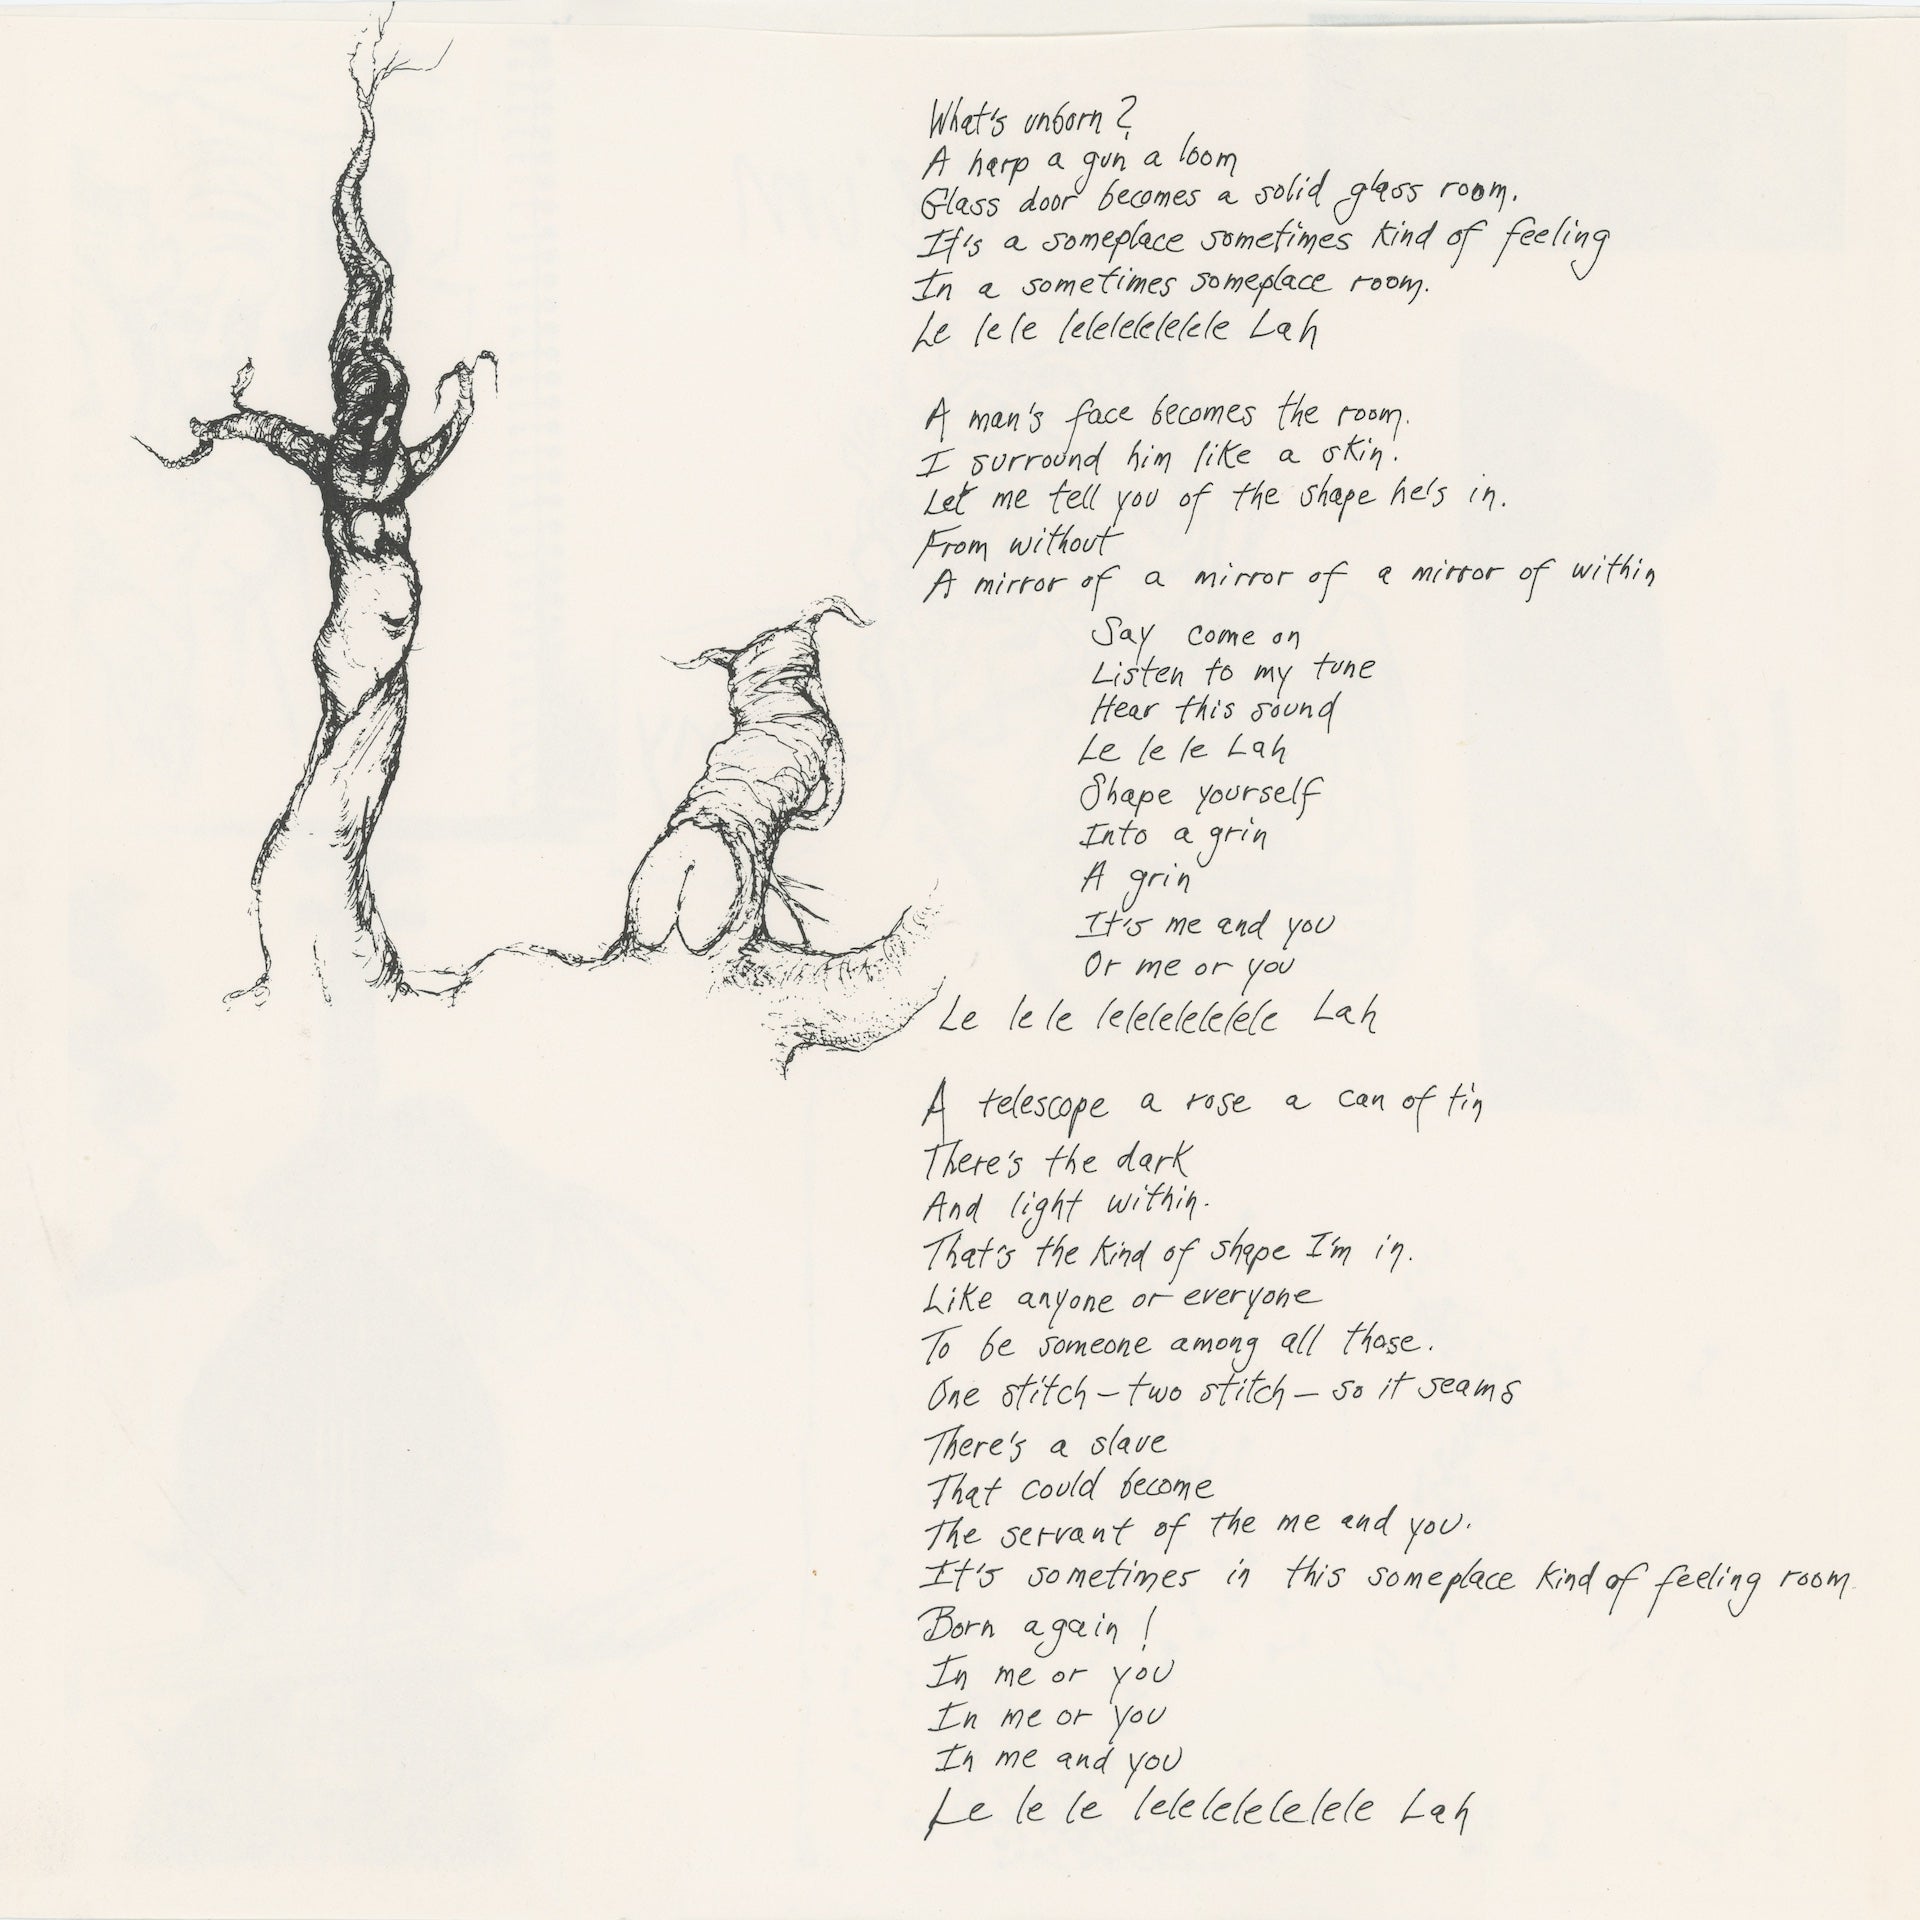 What's unborn?
A harp a gun a loom
Glass door becomes a solid glass room.
It's a someplace sometimes kind of feeling
In a sometimes someplace room.
Le le le lelelelelelele Lah
A man's face becomes the room.
I surround him like a skin.
Let me tell you of the shape he's in.
From without
A mirror of a mirror of a mirror of within
Say come on
Listen to my tune
Hear this sound
Le le le Lah
Shape yourself
Into a grin
A grin
It's me and you
Or me or you
Le le le lelelelelelele Lah
A telescope a rose a can of tin
There's the dark
And light within.
That's the kind of shape I'm in.
Like anyone or everyone
To be someone among all those.
One stitch – two stitch – so it seams
There's a slave
That could become
The servant of the me and you.
It's sometimes in this someplace kind of feeling room
Born again!
In me or you
In me or you
In me and you
Le le le lelelelelelele Lah